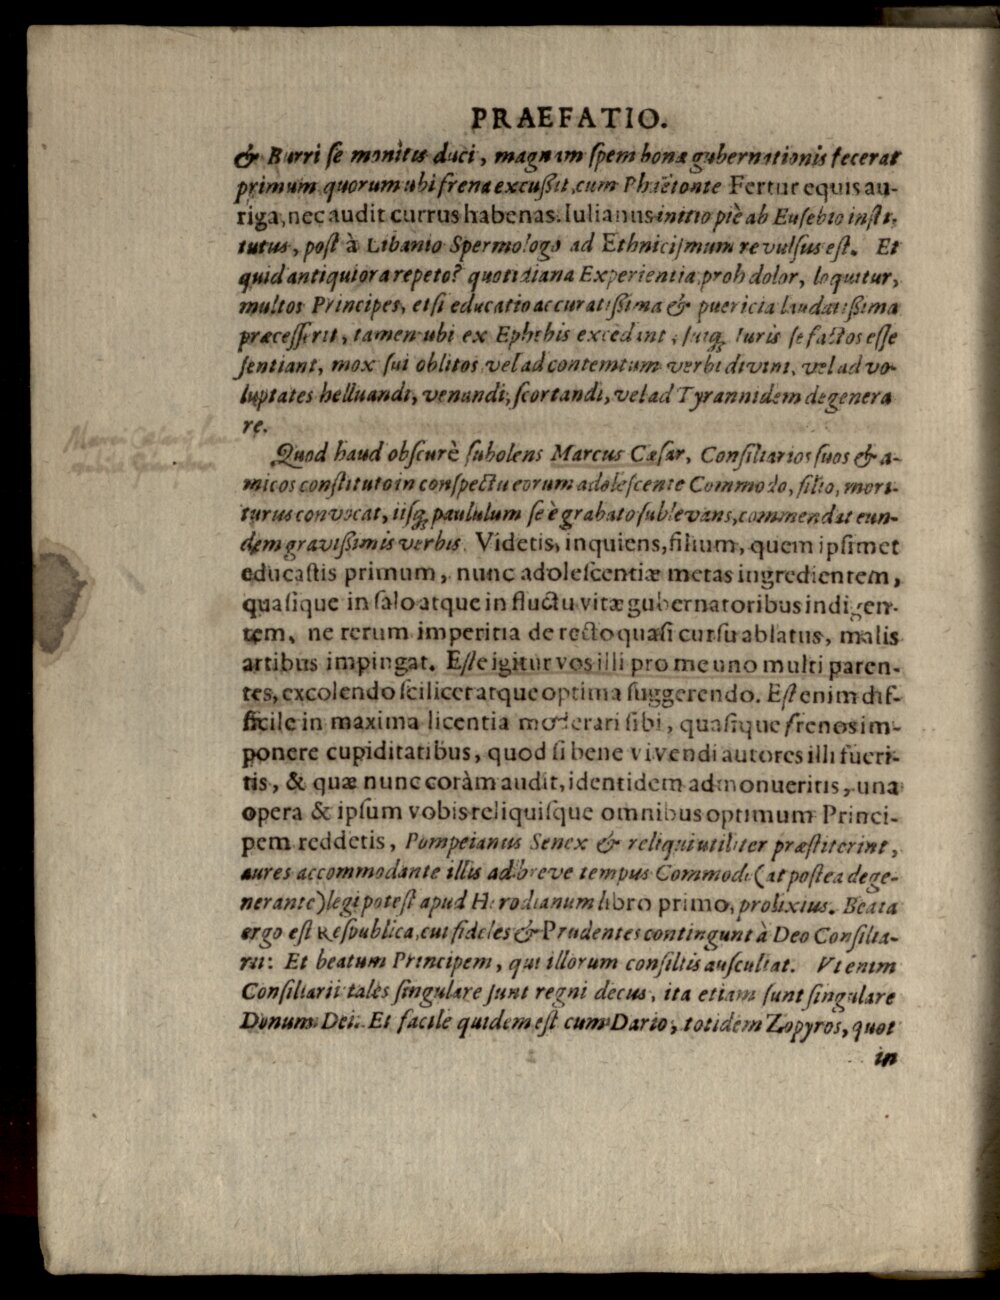 PRAEFATIO.
& Burri se monitis duci, magnam spem bonæ gubernationis fecerat
primum quorum ubi frena excußit, cum Phaëtonte Fertur equis au-
riga, nec audit currus habenas. Iulianus initio piè ab Eusebio insti-
tutus, post à Libanio Spermologo ad Ethnicismum revulsus est. Et
quid antiquiora repeto? quotidiana Experientia, proh dolor, loquitur,
multos Principes, etsi educatio accuratißima & puericia laudatißima
præcesserit, tamen ubi ex Ephebis excedunt, suiq; Iuris se factos esse
sentiant, mox sui oblitos vel ad contemtum verbi divini, vel ad vo-
luptates helluandi, venandi, scortandi, vel ad Tyrannidem degenera
re.
Quod haud obscurè subolens Marcus Cæsar, Consiliarios suos & a-
micos constituto in conspectu eorum adolescente Commodo, filio, mori-
turus convocat, iisq; paululum se è grabato sublevans, commendat eun-
dem gravißimis verbis. Videtis, inquiens, filium, quem ipsimet
educastis primum, nunc adolescentiæ metas ingredientem,
quasique in salo atque in fluctu vitæ gubernatoribus indigen-
tem, ne rerum imperitia de recto quasi cursu ablatus, malis
artibus impingat. Este igitur vos illi pro me uno multi paren-
tes, excolendo scilicet atque optima suggerendo. Est enim dif-
ficile in maxima licentia moderari sibi, quasique frenos im-
ponere cupiditatibus, quod si bene vivendi autores illi fueri-
tis, & quæ nunc coràm audit, identidem admonueritis, una
opera & ipsum vobis reliquisque omnibus optimum Princi-
pem reddetis, Pompeianus Senex & reliqui utiliter præstiterint,
aures accommodante illis ad breve tempus Commodo (at postea dege-
nerante) legi potest apud Herodianum libro primo, prolixius. Beata
ergo est Respublica, cui fideles & Prudentes contingunt à Deo Consilia-
rii: Et beatum Principem, qui illorum consiliis auscultat. Vt enim
Consiliarii tales singulare sunt regni decus, ita etiam sunt singulare
Donum Dei. Et facile quidem est cum Dario, totidem Zopyros, quot
in